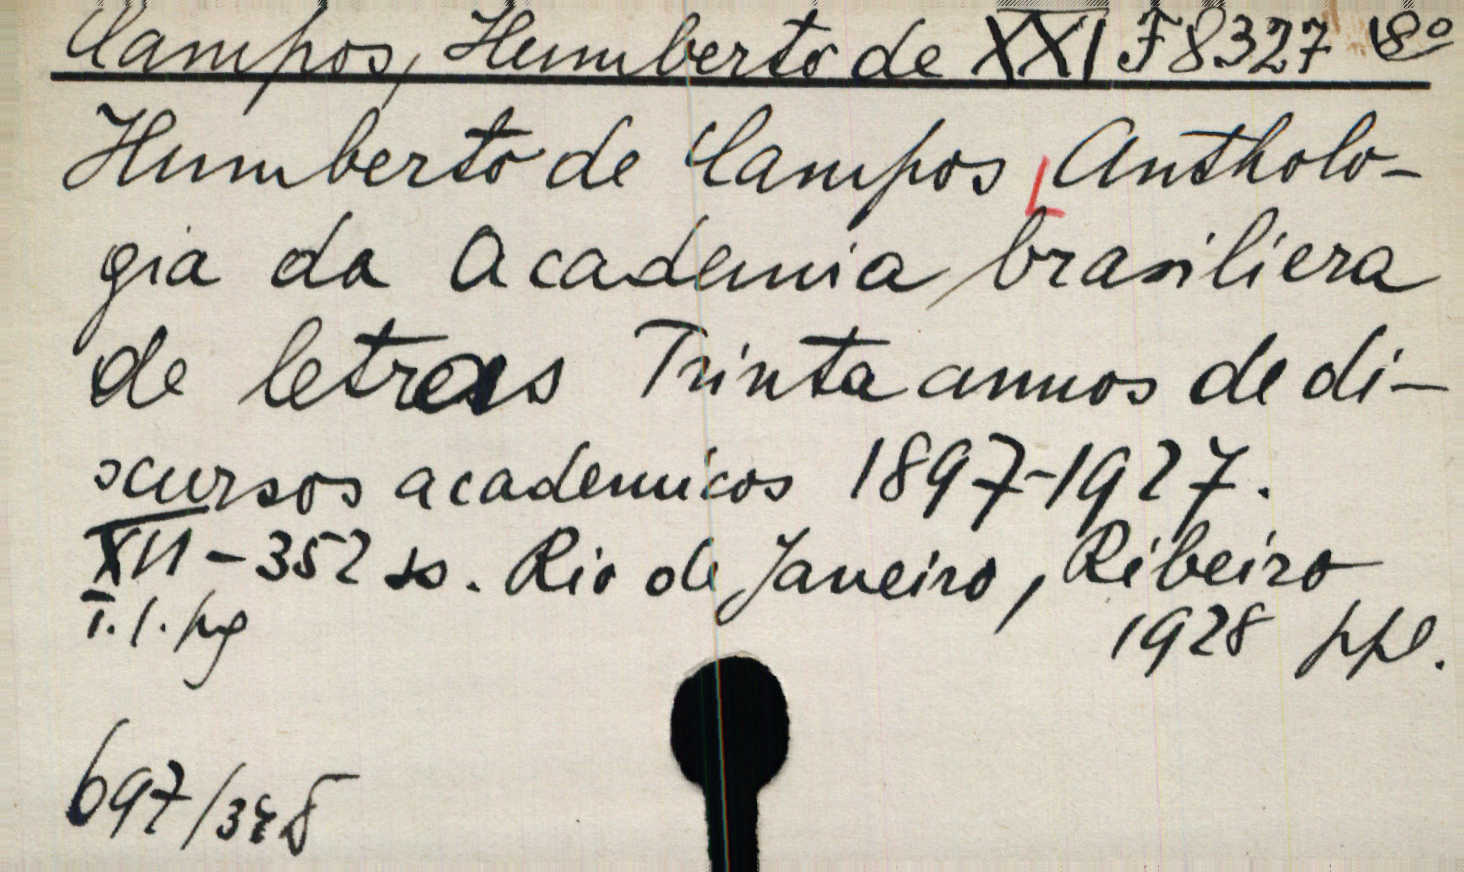 Campos, Humberto de XXI F 8327 8º
Humberto de Campos, Antholo-
gia da Academia brasiliera
de letras Trinta annos de di-
scursos academicos 1897-1927.
XII-352 ss. Rio de Janeiro, Ribeiro
1928 ppl.
697/